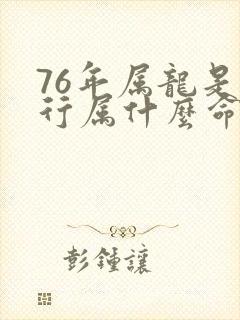 76年属龍是
行属什麼命
彭鍾讓